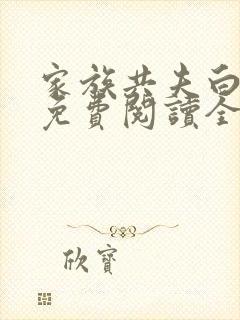 家族共夫白
免費閱讀全
欣寶